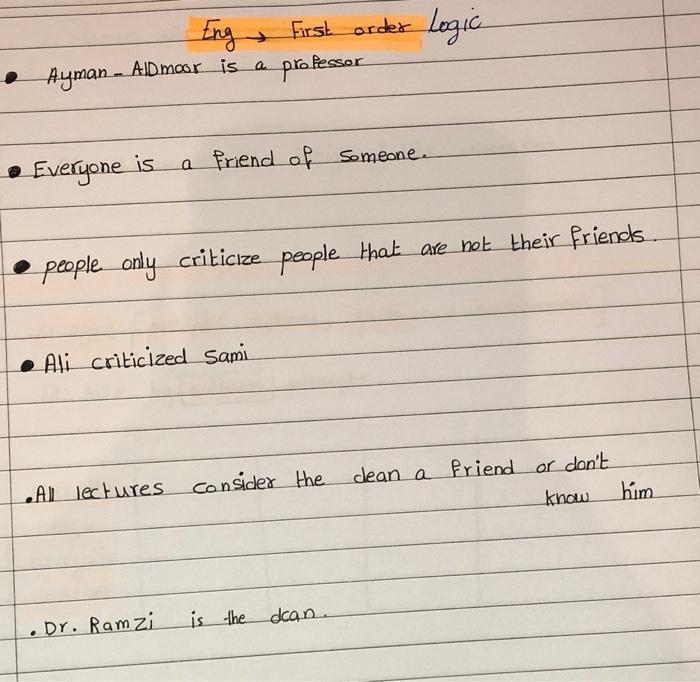 Eng → First order Logic
• Ayman - AlDmoor is a professor
• Everyone is a friend of someone.
• people only criticize people that are not their friends.
• Ali criticized Sami
• All lectures consider the dean a friend or don't
know him
• Dr. Ramzi is the dean.